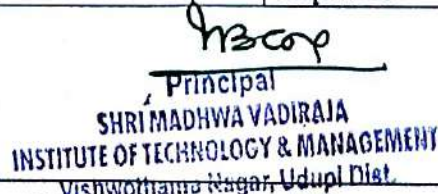 Principal
SHRI MADHWA VADIRAJA
INSTITUTE OF TECHNOLOGY & MANAGEMENT
Vishwothama Nagar, Udupi Dist.